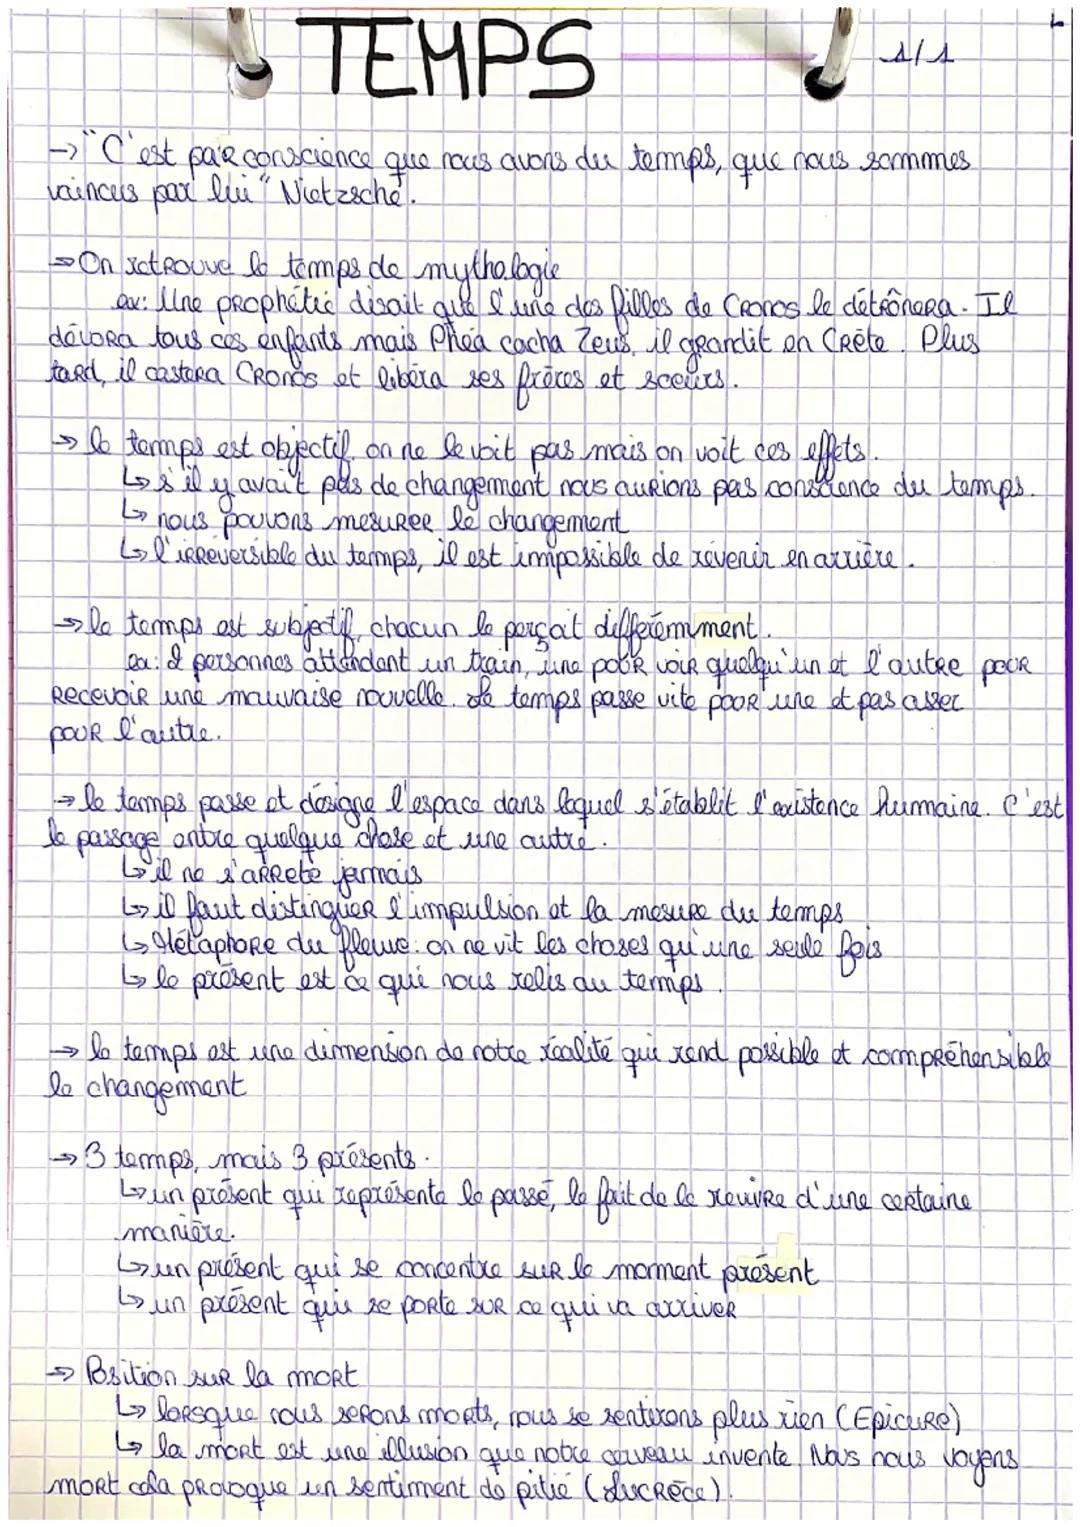 TEMPS 1/1
→ "C'est par conscience que nous avons du temps, que nous sommes
vaincus par lui" Nietzsche.
→ On retrouve le temps de mythologie
ex: Une prophétie disait que l'une des filles de Cronos le détrônera. Il
dévora tous ces enfants mais Rhéa cacha Zeus, il grandit en Crète. Plus
tard, il castera Cronos et libéra ses frères et soeurs.
→ le temps est objectif, on ne le voit pas mais on voit ces effets.
↳ s'il y avait pas de changement nous aurions pas conscience du temps.
↳ nous pouvons mesurer le changement
↳ l'irréversible du temps, il est impossible de revenir en arrière.
→ le temps est subjectif, chacun le perçoit différemment.
ex: 2 personnes attendent un train, une pour voir quelqu'un et l'autre pour
recevoir une mauvaise nouvelle. Le temps passe vite pour une et pas asser
pour l'autre.
→ le temps passe et désigne l'espace dans lequel s'établit l'existence humaine. C'est
le passage entre quelque chose et une autre.
↳ il ne s'arrete jamais
↳ il faut distinguer l'impulsion et la mesure du temps
↳ Métaphore du fleuve: on ne vit les choses qu'une seule fois
↳ le présent est ce qui nous relis au temps.
→ le temps est une dimension de notre réalité qui rend possible et compréhensible
le changement
→ 3 temps, mais 3 présents.
↳ un présent qui représente le passé, le fait de le revivre d'une certaine
manière.
↳ un présent qui se concentre sur le moment présent
↳ un présent qui se porte sur ce qui va arriver
→ Position sur la mort
↳ lorsque nous serons morts, nous se sentirons plus rien (Epicure)
↳ la mort est une illusion que notre cerveau invente. Nous nous voyons
mort cela provoque un sentiment de pitié (Lucrèce).